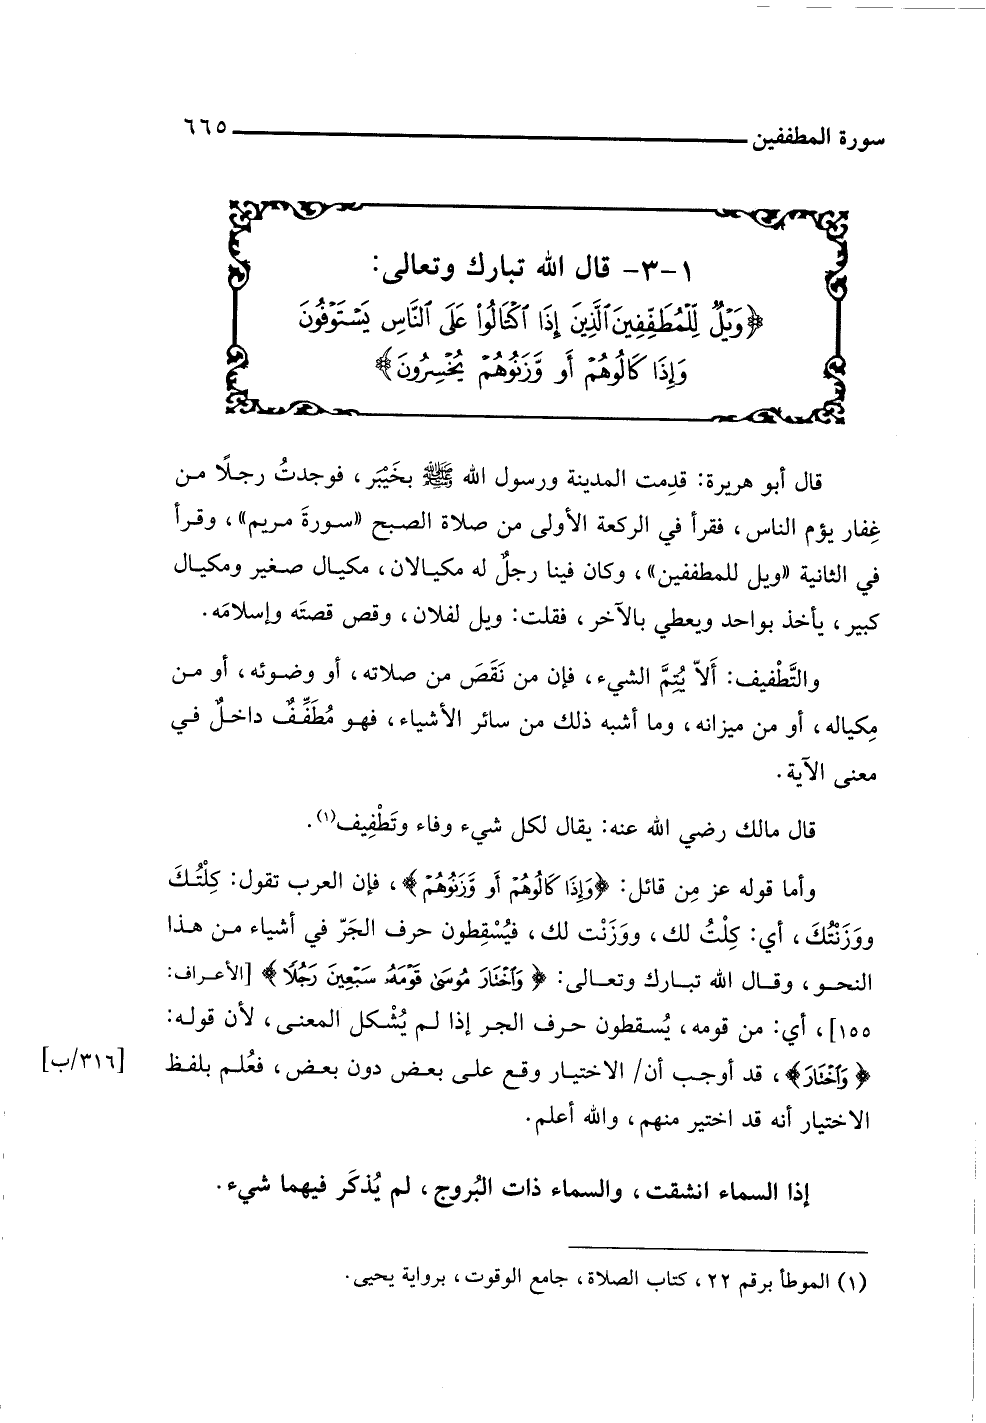 سورة المطففين ٦٦٥
١-٣- قال الله تبارك وتعالى:
﴿وَيْلٌ لِّلْمُطَفِّفِينَ ٱلَّذِينَ إِذَا ٱكْتَالُوا۟ عَلَى ٱلنَّاسِ يَسْتَوْفُونَ
وَإِذَا كَالُوهُمْ أَو وَّزَنُوهُمْ يُخْسِرُونَ﴾
قال أبو هريرة: قدِمت المدينة ورسول الله ﷺ بخَيْبَر، فوجدتُ رجلًا من
غِفار يؤم الناس، فقرأ في الركعة الأولى من صلاة الصبح «سورةَ مريم»، وقرأ
في الثانية «ويل للمطففين»، وكان فينا رجلٌ له مكيالان، مكيال صغير ومكيال
كبير، يأخذ بواحد ويعطي بالآخر، فقلت: ويل لفلان، وقص قصتَه وإسلامَه.
والتَّطْفيف: أَلاّ يُتِمَّ الشيء، فإن من نَقَصَ من صلاته، أو وضوئه، أو من
مِكياله، أو من ميزانه، وما أشبه ذلك من سائر الأشياء، فهو مُطَفِّفٌ داخلٌ في
معنى الآية.
قال مالك رضي الله عنه: يقال لكل شيء وفاء وتَطْفِيف(١).
وأما قوله عز مِن قائل: ﴿وَإِذَا كَالُوهُمْ أَو وَّزَنُوهُمْ﴾، فإن العرب تقول: كِلْتُكَ
ووَزَنْتُكَ، أي: كِلْتُ لك، ووزَنْت لك، فيُسْقِطون حرف الجَرّ في أشياء من هذا
النحو، وقال الله تبارك وتعالى: ﴿وَٱخْتَارَ مُوسَىٰ قَوْمَهُۥ سَبْعِينَ رَجُلًا﴾ [الأعراف:
١٥٥]، أي: من قومه، يُسقطون حرف الجر إذا لم يُشْكل المعنى، لأن قوله:
﴿وَٱخْتَارَ﴾، قد أوجب أن/ الاختيار وقع على بعض دون بعض، فعُلم بلفظ [٣١٦/ب]
الاختيار أنه قد اختير منهم، والله أعلم.
إذا السماء انشقت، والسماء ذات البُروج، لم يُذكَر فيهما شيء.
(١) الموطأ برقم ٢٢، كتاب الصلاة، جامع الوقوت، برواية يحيى.